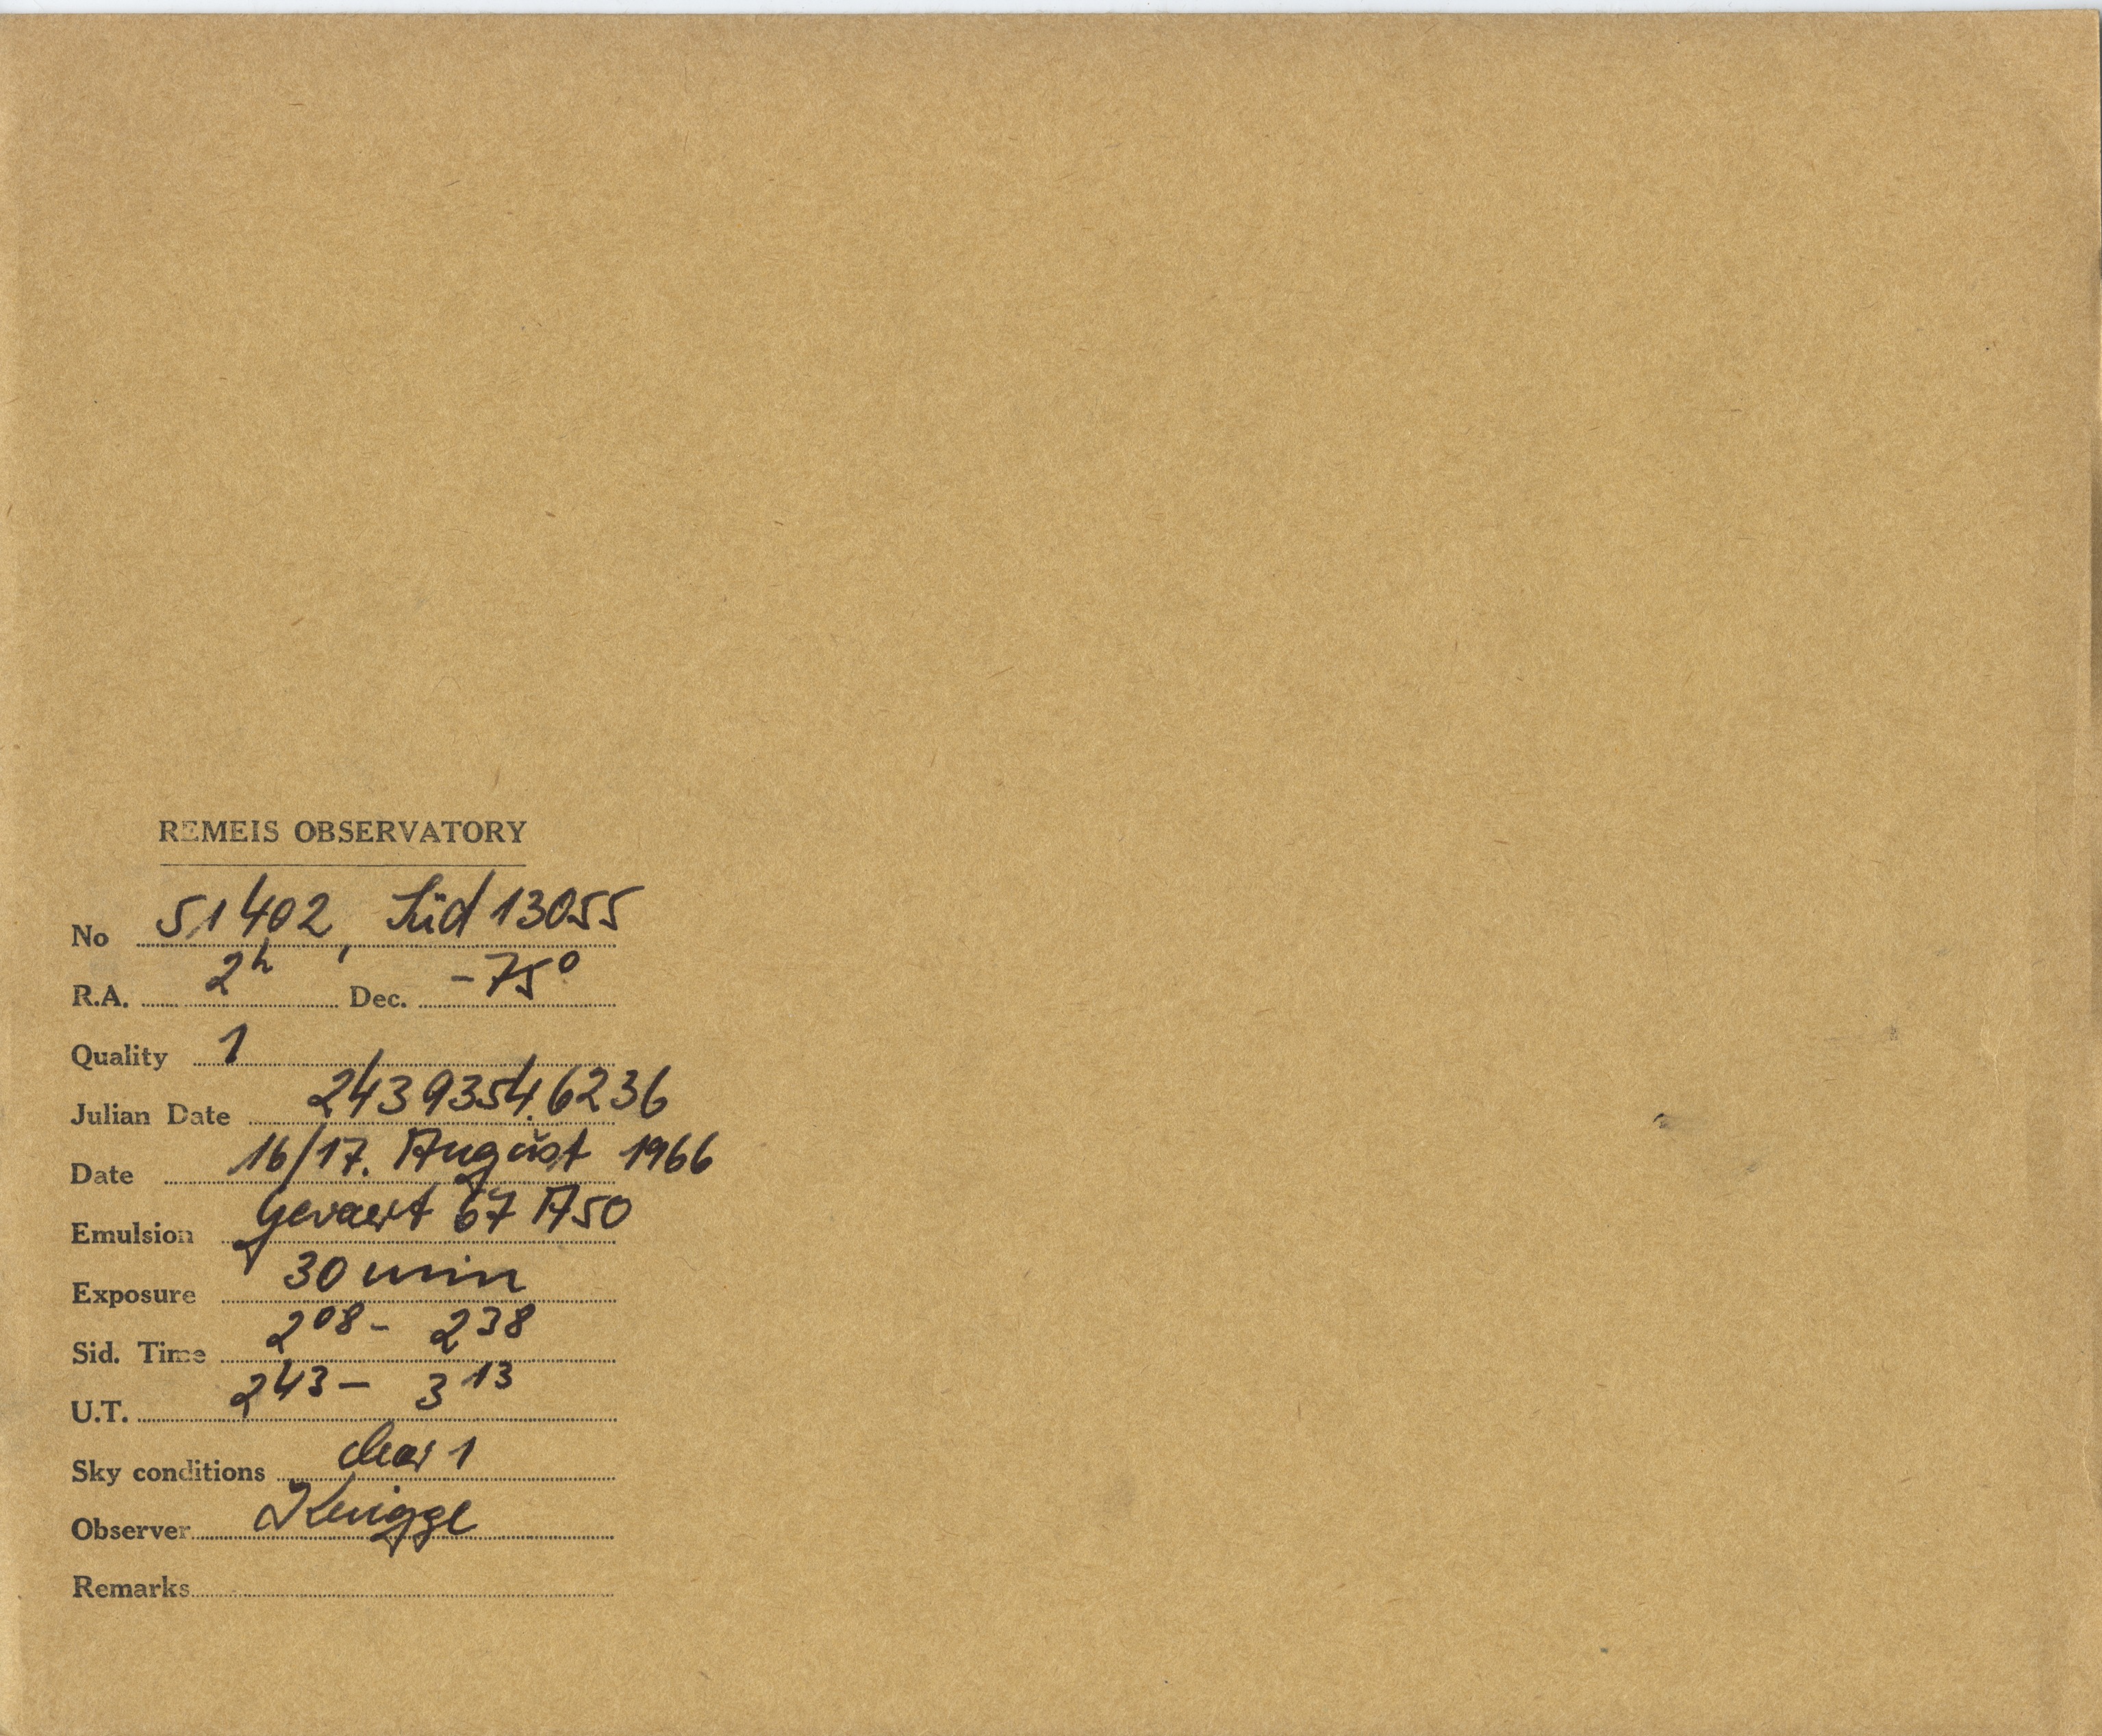 REMEIS OBSERVATORY
No 51402, Süd 13055
R.A. 2ʰ Dec. -75°
Quality 1
Julian Date 2439354.6236
Date 16/17. August 1966
Emulsion Gevaert 67 A50
Exposure 30 min
Sid. Time 2⁰⁸ - 2³⁸
U.T. 2⁴³ - 3¹³
Sky conditions clear 1
Observer Knigge
Remarks